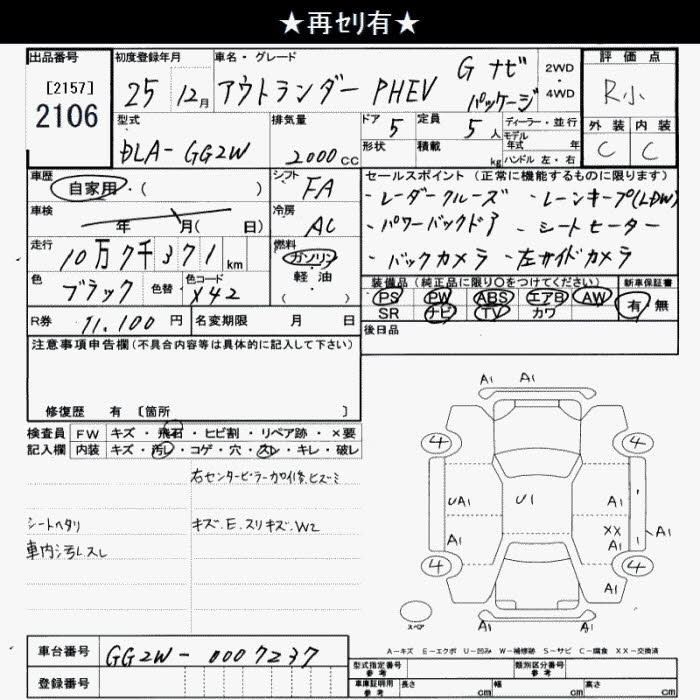 ★再ｾﾘ有★
出品番号 初度登録年月 車名・グレード 評価点
[2157]
2106
25 12月 アウトランダー PHEV G ナビ パッケージ 2WD・4WD R小
型式 排気量 ドア 5 定員 5人 ディーラー・並行 外装 内装
DLA-GG2W 2000CC 形状 積載 kg モデル年式 年 C C
ハンドル 左・右
車歴 自家用・( ) シフト FA セールスポイント (正常に機能するものに限ります)
・レーダークルーズ ・レーンキープ(LDW)
車検 年 月( 日) 冷房 AC ・パワーバックドア ・シートヒーター
走行 10万7千371km 燃料 ガソリン・軽・油 ( ) ・バックカメラ ・左サイドカメラ
色 ブラック 色替 色コード X42 装備品(純正品に限り○をつけてください) 新車保証書
PS PW ABS エアB AW 有 無
R券 11,100円 名変期限 月 日 SR ナビ TV カワ
後日品
注意事項申告欄(不具合内容等は具体的に記入して下さい)
修復歴 有 〔箇所 〕
検査員 FW キズ・飛石・ヒビ割・リペア跡・×要
記入欄 内装 キズ・汚レ・コゲ・穴・スレ・キレ・破レ
右センターピラー加修、ヒズミ
シートヘタリ キズ.E.スリキズ.W2
車内汚レスレ
A1 A1
4 4
UA1 U1 A1
A1 XX A1 A1
4 A1 4
スペア A1 A1
A-キズ E-エクボ U-凹み W-補修跡 S-サビ C-腐食 XX-交換済
車台番号 GG2W-0007237
登録番号
型式指定番号 参考 類別区分番号 参考
車庫証明用 参考 長さ cm 幅 cm 高さ cm